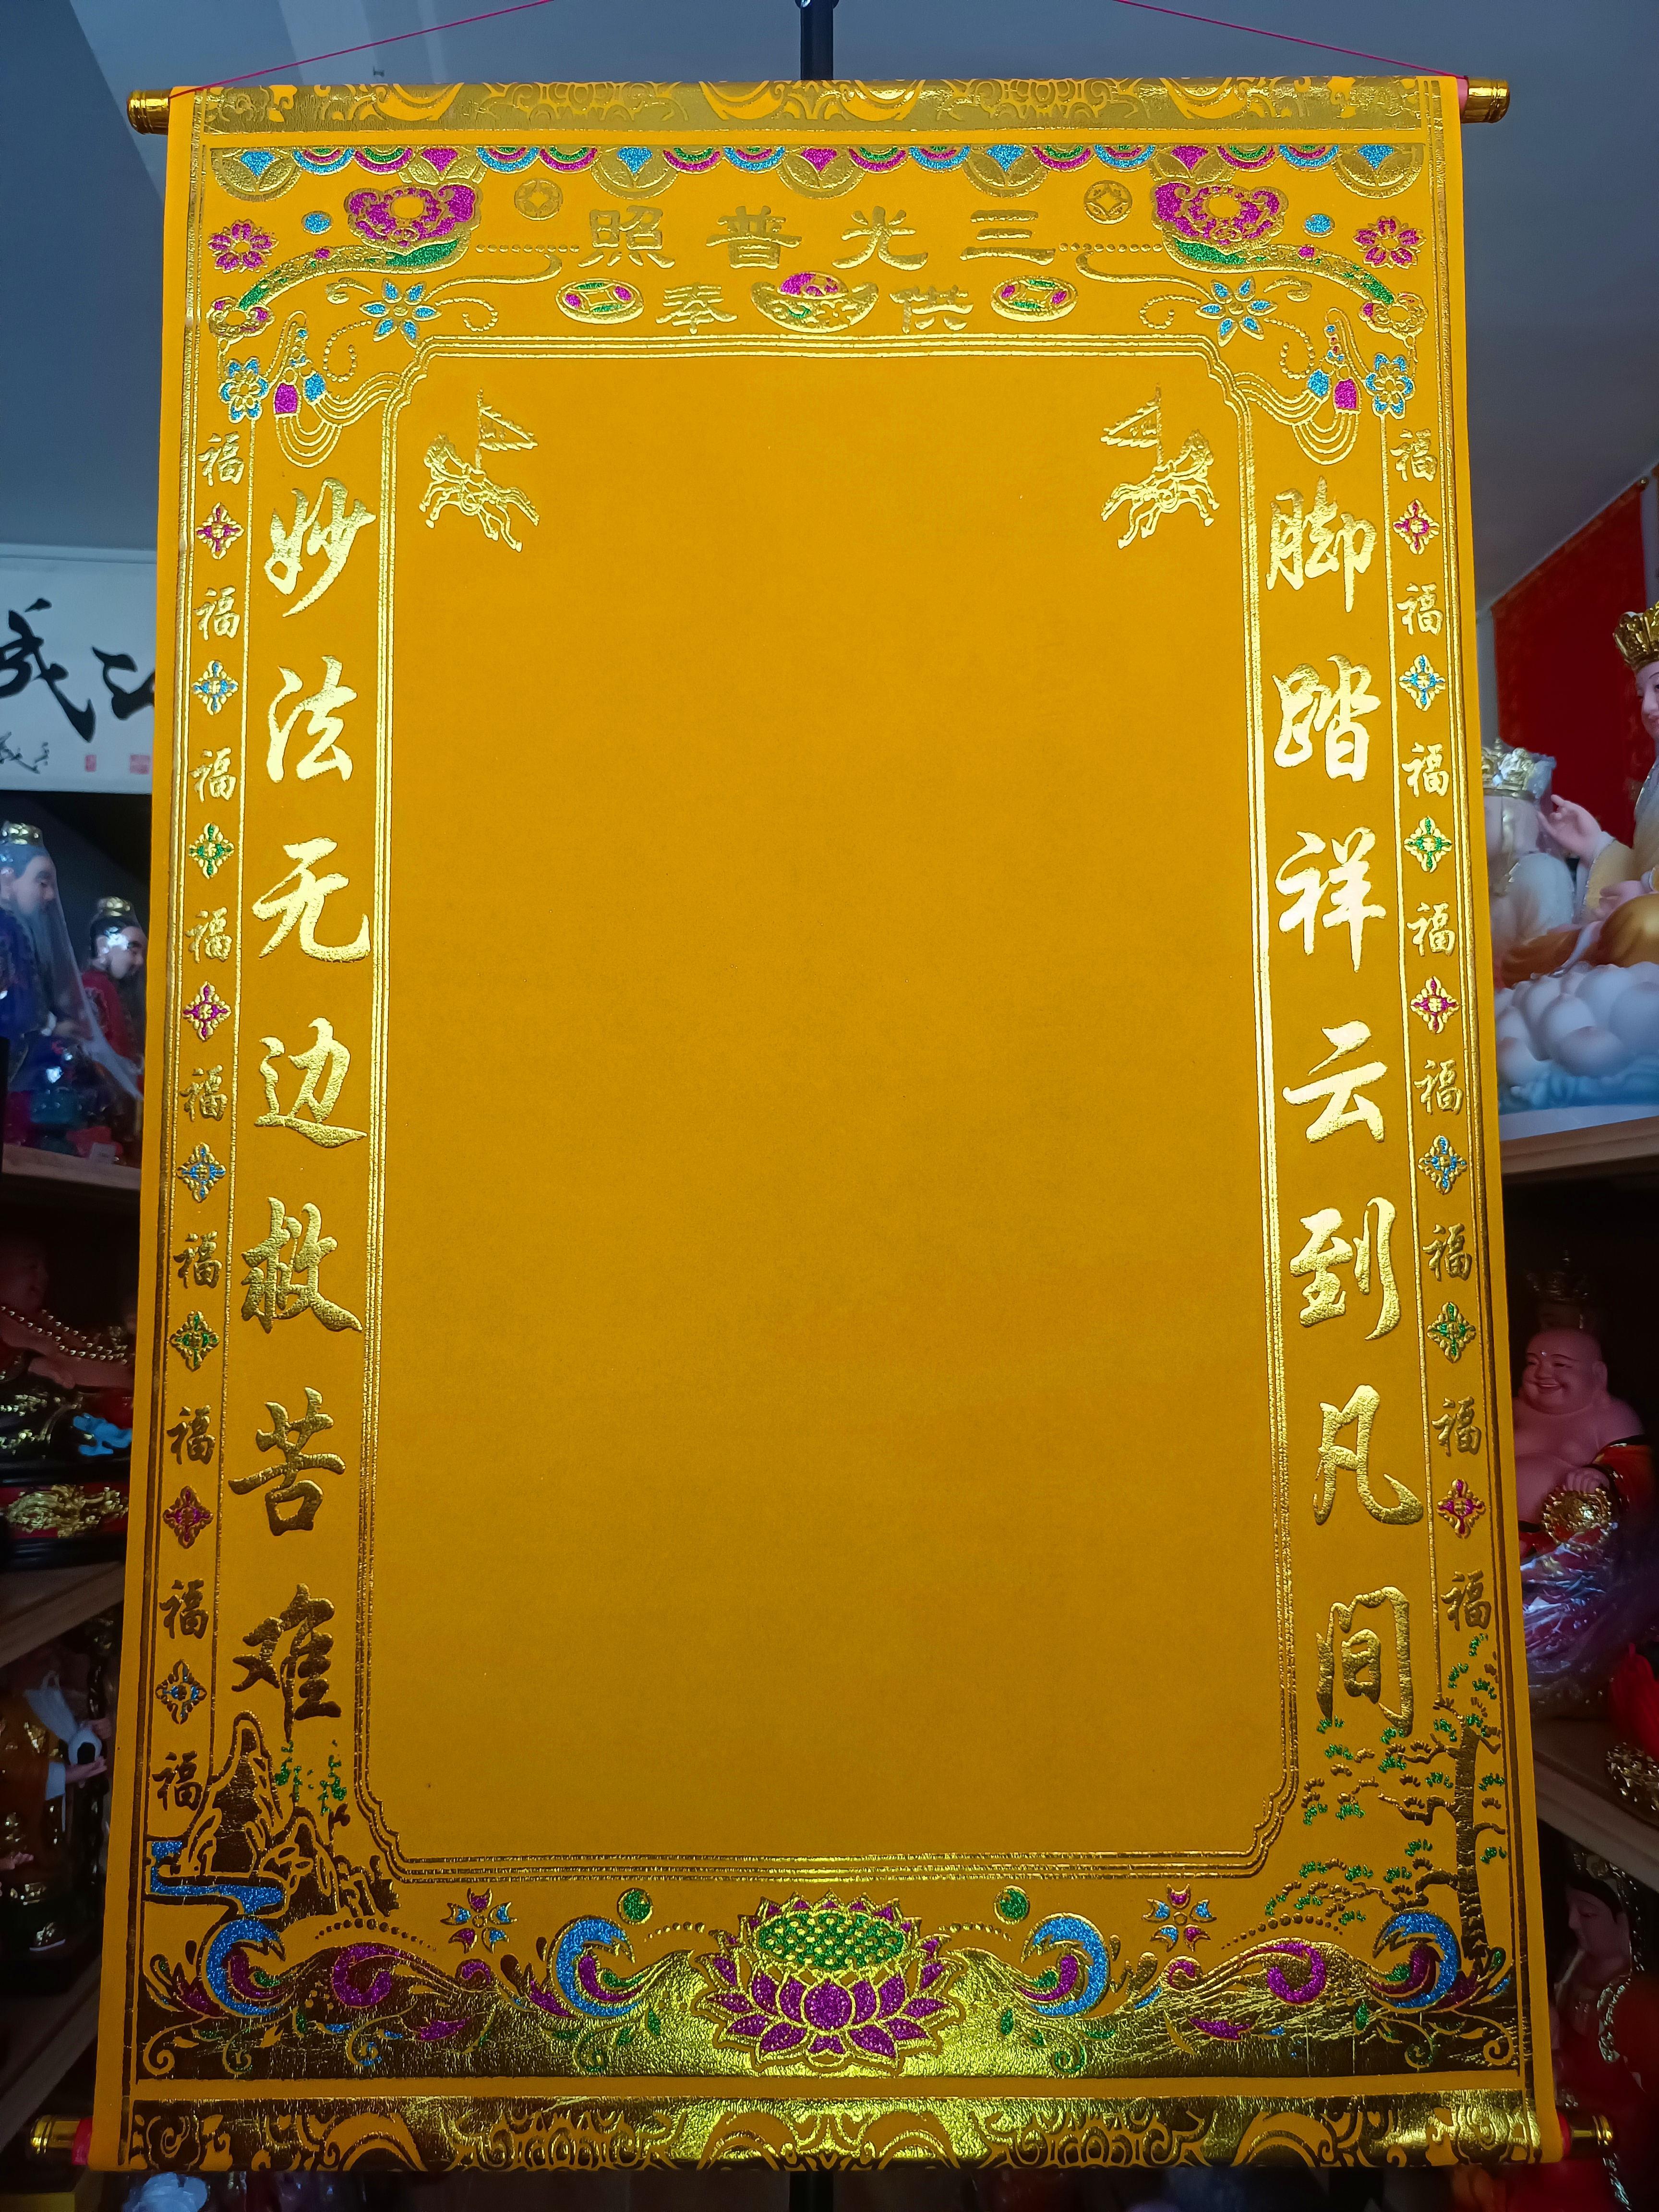 三光普照
供奉
福福福福福福福福
脚踏祥云到凡间
妙法无边救苦难
福福福福福福福福福